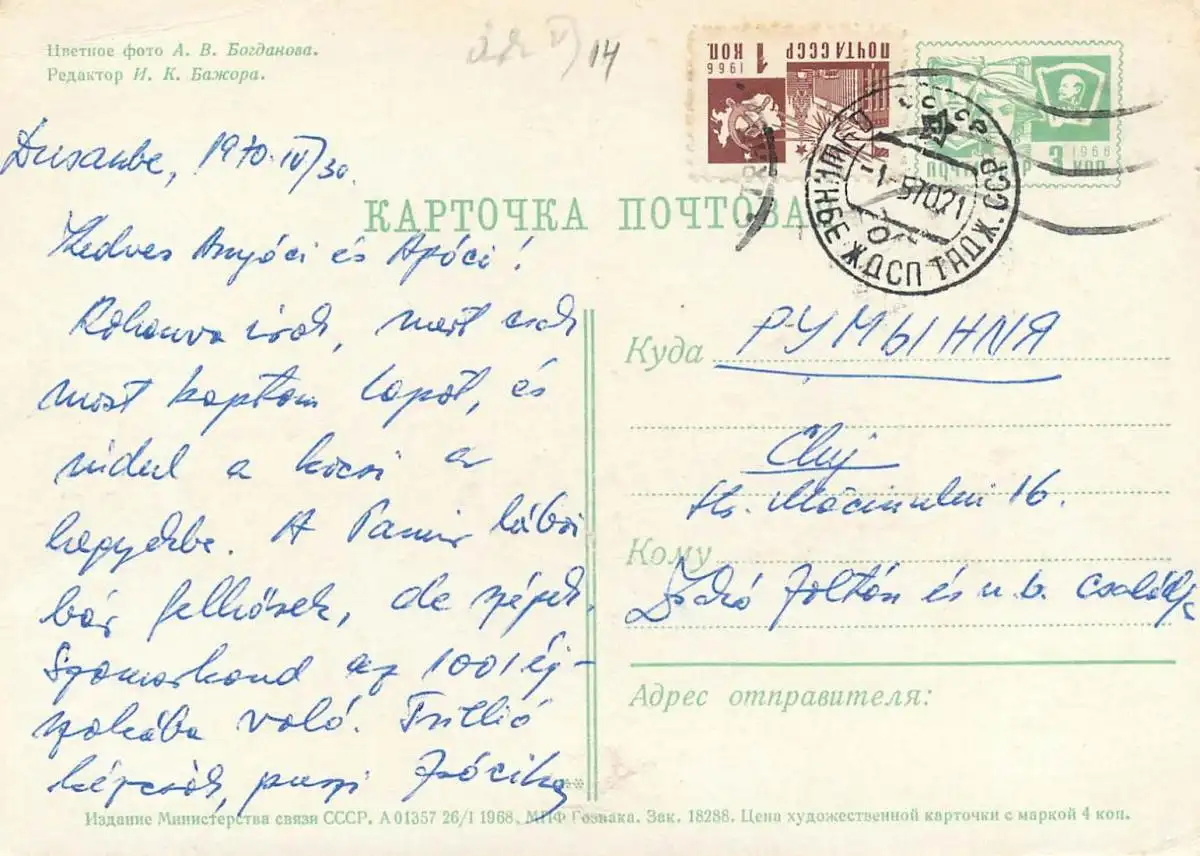 Цветное фото А. В. Богданова.
Редактор И. К. Бажора.
14
ПОЧТА СССР
1966
1 КОП.
1966
3 КОП.
СССР
-1-57021
ДУШАНБЕ ЖДСП ТАДЖ. ССР
Dusanbe, 1970. IV/30.
КАРТОЧКА ПОЧТОВА
Kedves Anyóci és Apóci!
Rohanva írok, mert csak
most kaptam lapot, és
indul a kocsi a
hegyekbe. A Pamir lábai
bár felhősek, de szépek.
Szamarkand az 1001 éj-
szakába való. Trillió
képcsók, puszi
Куда РУМЫНИЯ
Cluj
Str. Măcinului 16.
Кому
Zoltán és n. b. családja
Адрес отправителя:
Издание Министерства связи СССР. А 01357 26/I 1968. МПФ Гознака. Зак. 18288. Цена художественной карточки с маркой 4 коп.